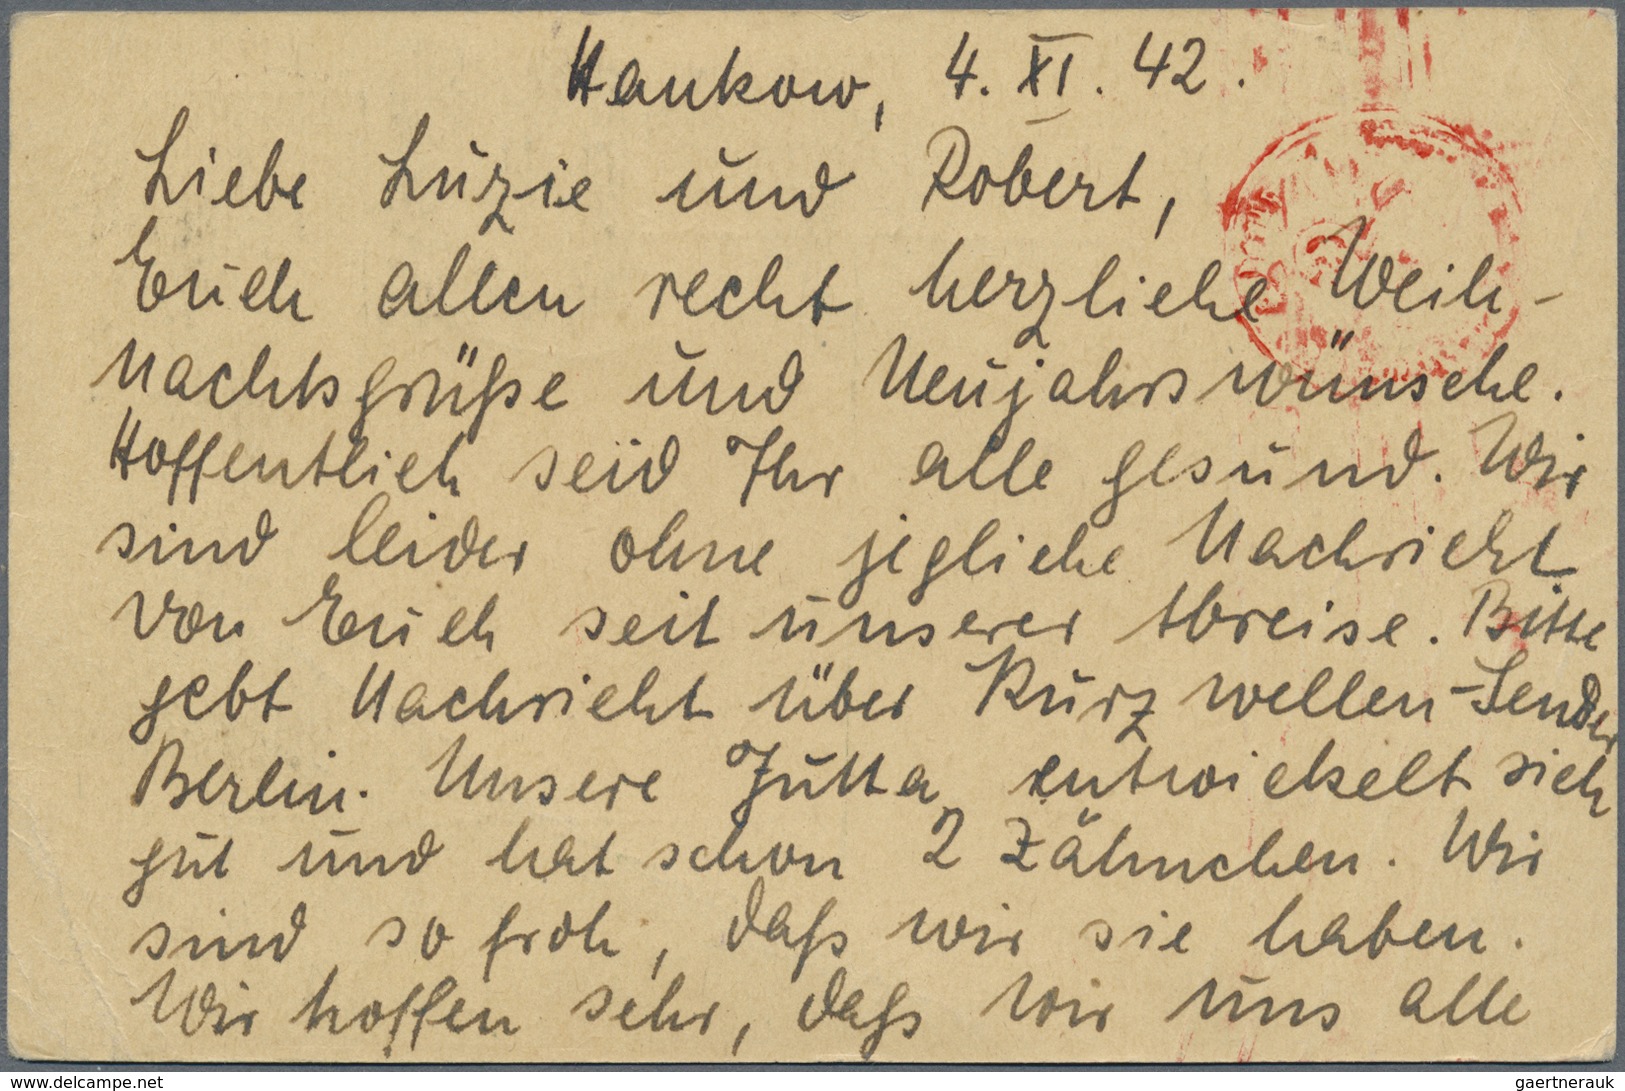 Hankow, 4. XI. 42.
Liebe Luzie und Robert,
Euch allen recht herzliche Weih-
nachtsgrüße und Neujahrswünsche.
Hoffentlich seid Ihr alle gesund. Wir
sind leider ohne jegliche Nachricht
von Euch seit unserer Abreise. Bitte
gebt Nachricht über Kurzwellen-Sender
Berlin. Unsere Jutta entwickelt sich
gut und hat schon 2 Zähnchen. Wir
sind so froh, daß wir sie haben.
Wir hoffen sehr, daß wir uns alle
www.delcampe.net
gaertnerauk